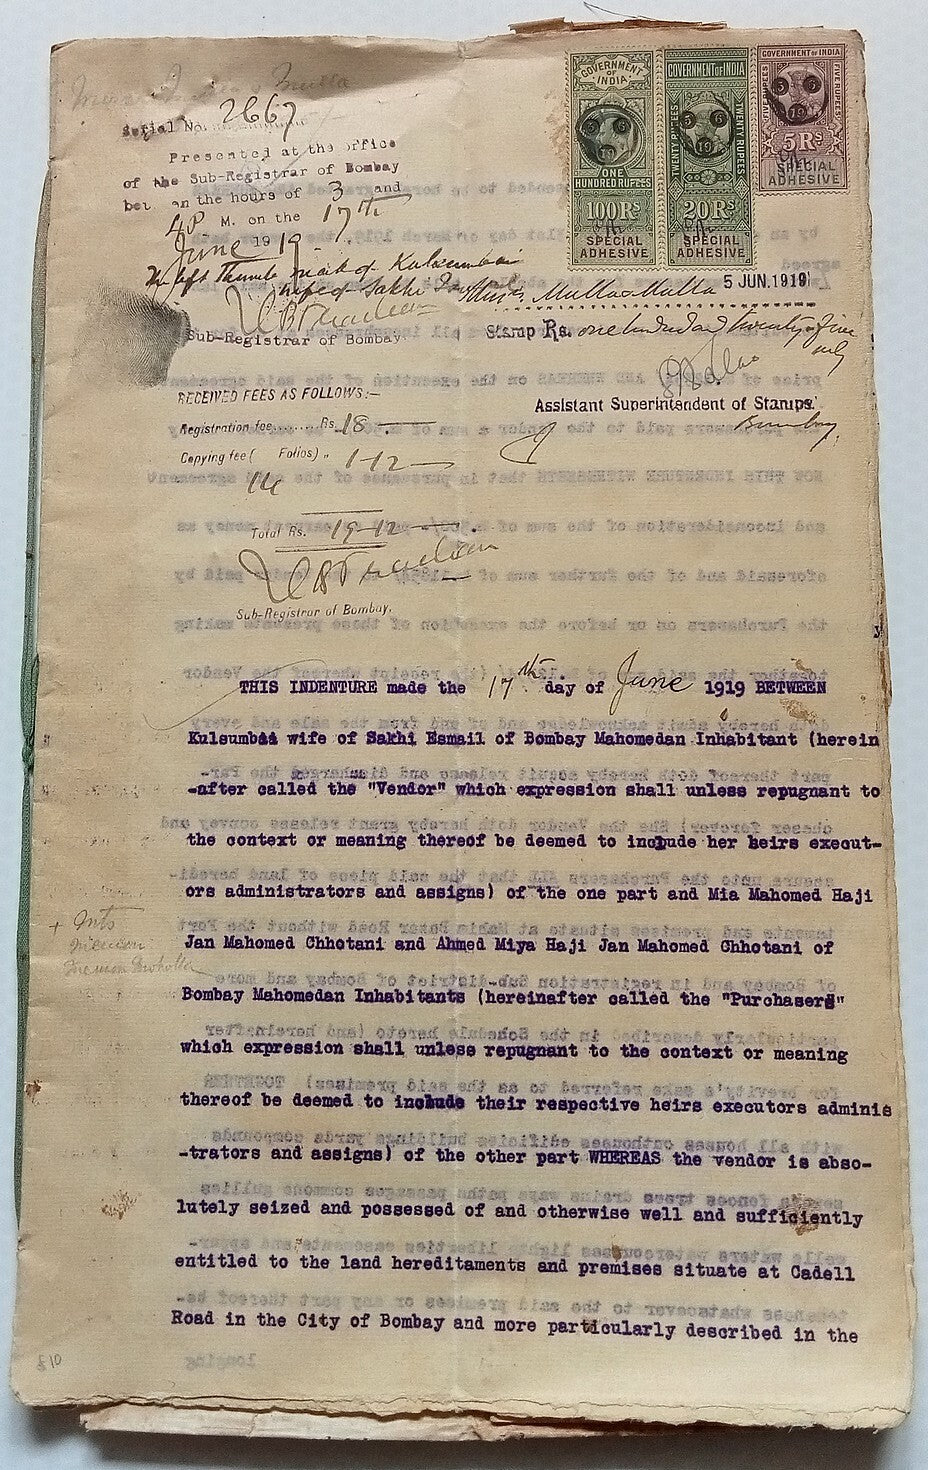 Serial No. 2667
Presented at the office
of the Sub-Registrar of Bombay
between the hours of 3 and
4 P M. on the 17th
June 1919
left thumb mark of Kulsumbai
wife of Sakhi
Sub-Registrar of Bombay.
GOVERNMENT
OF
INDIA
ONE
HUNDRED RUPEES
100Rs
SPECIAL
ADHESIVE
GOVERNMENT OF INDIA
TWENTY RUPEES
TWENTY RUPEES
20Rs
SPECIAL
ADHESIVE
GOVERNMENT OF INDIA
FIVE RUPEES
FIVE RUPEES
5Rs
SPECIAL
ADHESIVE
Mulla & Mulla 5 JUN.1919
Stamp Rs. one hundred and twenty-five
only
Assistant Superintendent of Stamps.
Bombay.
RECEIVED FEES AS FOLLOWS:—
Registration fee....... Rs. 18
Copying fee ( Folios) „ 1-12
14
Total Rs. 19-12
Sub-Registrar of Bombay.
THIS INDENTURE made the 17th day of June 1919 BETWEEN
Kulsumbai wife of Sakhi Esmail of Bombay Mahomedan Inhabitant (herein
-after called the "Vendor" which expression shall unless repugnant to
the context or meaning thereof be deemed to include her heirs execut-
ors administrators and assigns) of the one part and Mia Mahomed Haji
Jan Mahomed Chhotani and Ahmed Miya Haji Jan Mahomed Chhotani of
Bombay Mahomedan Inhabitants (hereinafter called the "Purchasers"
which expression shall unless repugnant to the context or meaning
thereof be deemed to include their respective heirs executors adminis
-trators and assigns) of the other part WHEREAS the vendor is abso-
lutely seized and possessed of and otherwise well and sufficiently
entitled to the land hereditaments and premises situate at Cadell
Road in the City of Bombay and more particularly described in the
£10